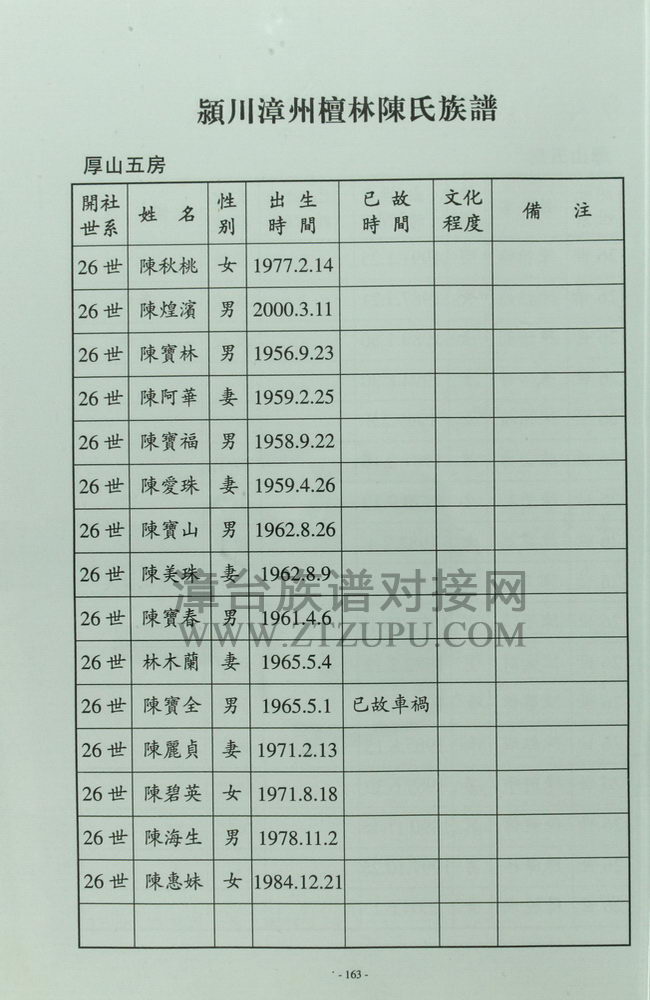 潁川漳州檀林陳氏族譜
厚山五房
開社世系 姓 名 性别 出生時間 已故時間 文化程度 備 注
26世 陳秋桃 女 1977.2.14
26世 陳煌濱 男 2000.3.11
26世 陳寶林 男 1956.9.23
26世 陳阿華 妻 1959.2.25
26世 陳寶福 男 1958.9.22
26世 陳愛珠 妻 1959.4.26
26世 陳寶山 男 1962.8.26
26世 陳美珠 妻 1962.8.9
漳台族谱对接网
26世 陳寶春 男 1961.4.6
WWW.ZTZUPU.COM
26世 林木蘭 妻 1965.5.4
26世 陳寶全 男 1965.5.1 已故車禍
26世 陳麗貞 妻 1971.2.13
26世 陳碧英 女 1971.8.18
26世 陳海生 男 1978.11.2
26世 陳惠妹 女 1984.12.21
- 163 -